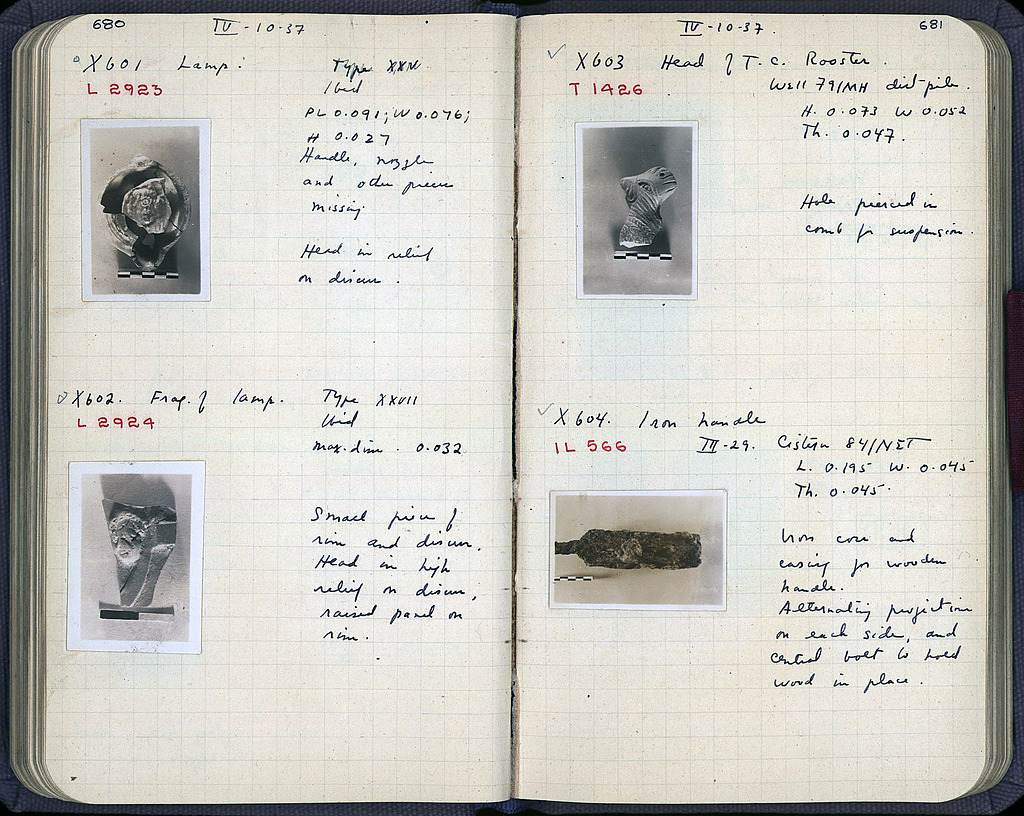 680
IV - 10-37
X601 Lamp.
Type XXIV
L 2923
Ibid
PL 0.091; W 0.076;
H 0.027
Handle, nozzle
and other pieces
missing.
Head in relief
on discus.
X602. Frag. of lamp.
Type XXVII
L 2924
Ibid
max. dim. 0.032
Small piece of
rim and discus.
Head in high
relief on discus,
raised panel on
rim.
IV - 10-37.
681
X603 Head of T.C. Rooster.
T 1426
Well 79/MH dist. pile.
H. 0.073 W 0.052
Th. 0.047.
Hole pierced in
comb for suspension.
X604. Iron handle
IL 566
III-29. Cistern 84/NET
L. 0.195 W. 0.045
Th. 0.045.
Iron core and
casing for wooden
handle.
Alternating projections
on each side, and
central bolt to hold
wood in place.